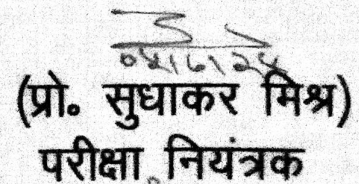 (प्रो॰ सुधाकर मिश्र)
परीक्षा नियंत्रक